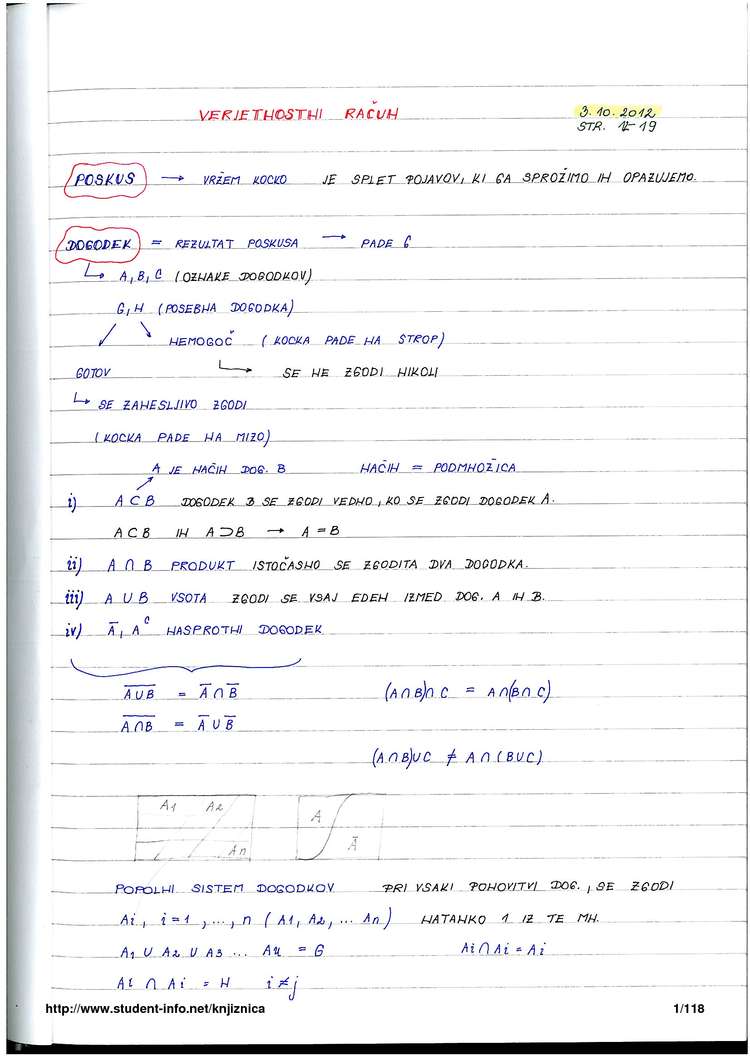 VERJETNOSTNI RAČUN
3.10.2012
STR. 1-19
POSKUS → VRŽEM KOCKO JE SPLET POJAVOV, KI GA SPROŽIMO IN OPAZUJEMO.
DOGODEK = REZULTAT POSKUSA → PADE 6
↳ A, B, C (OZNAKE DOGODKOV)
G, N (POSEBNA DOGODKA)
NEMOGOČ (KOCKA PADE NA STROP)
GOTOV ↳ SE NE ZGODI NIKOLI
↳ SE ZANESLJIVO ZGODI
(KOCKA PADE NA MIZO)
A JE NAČIN DOG. B NAČIN = PODMNOŽICA
i) A ⊂ B DOGODEK B SE ZGODI VEDNO, KO SE ZGODI DOGODEK A.
A ⊂ B IN A ⊃ B → A = B
ii) A ∩ B PRODUKT ISTOČASNO SE ZGODITA DVA DOGODKA.
iii) A ∪ B VSOTA ZGODI SE VSAJ EDEN IZMED DOG. A IN B.
iv) A̅, Aᶜ NASPROTNI DOGODEK
A̅∪̅B̅ = A̅ ∩ B̅ (A∩B)∩C = A∩(B∩C)
A̅∩̅B̅ = A̅ ∪ B̅
(A∩B)∪C ≠ A∩(B∪C)
A1 A2 An
A A̅
POPOLNI SISTEM DOGODKOV PRI VSAKI PONOVITVI DOG., SE ZGODI
Ai, i=1,...,n (A1, A2, ... An) NATANKO 1 IZ TE MN.
A1 ∪ A2 ∪ A3 ... An = G Ai∩Ai = Ai
Ai ∩ Aj = N i≠j
http://www.student-info.net/knjiznica 1/118